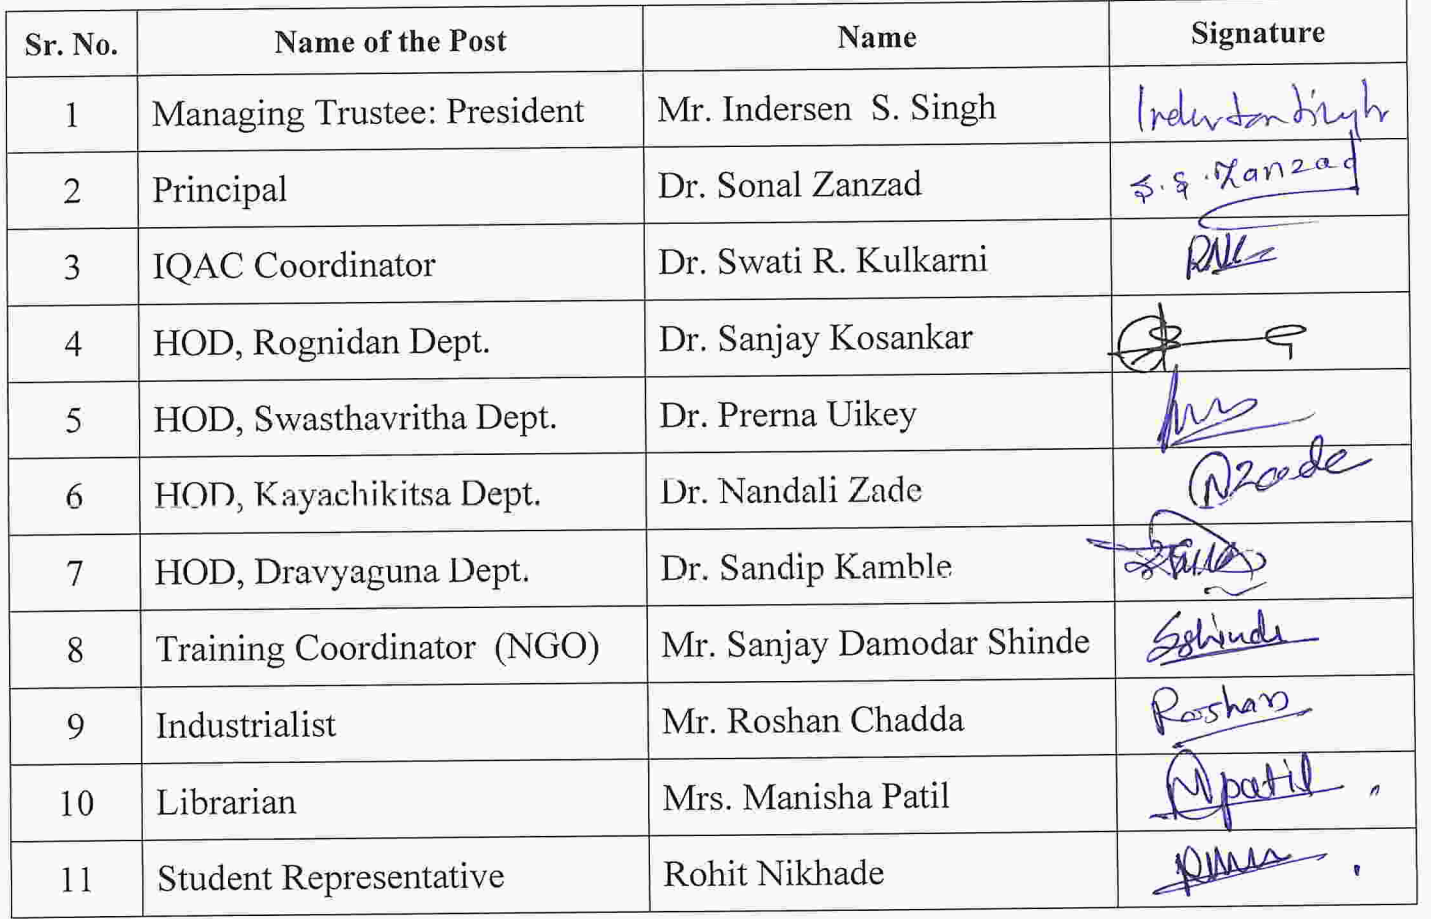 Sr. No. Name of the Post Name Signature
1 Managing Trustee: President Mr. Indersen S. Singh
2 Principal Dr. Sonal Zanzad S. G. Zanzad
3 IQAC Coordinator Dr. Swati R. Kulkarni
4 HOD, Rognidan Dept. Dr. Sanjay Kosankar
5 HOD, Swasthavritha Dept. Dr. Prerna Uikey
6 HOD, Kayachikitsa Dept. Dr. Nandali Zade Nzade
7 HOD, Dravyaguna Dept. Dr. Sandip Kamble
8 Training Coordinator (NGO) Mr. Sanjay Damodar Shinde SShinde
9 Industrialist Mr. Roshan Chadda Roshan
10 Librarian Mrs. Manisha Patil Mpatil
11 Student Representative Rohit Nikhade